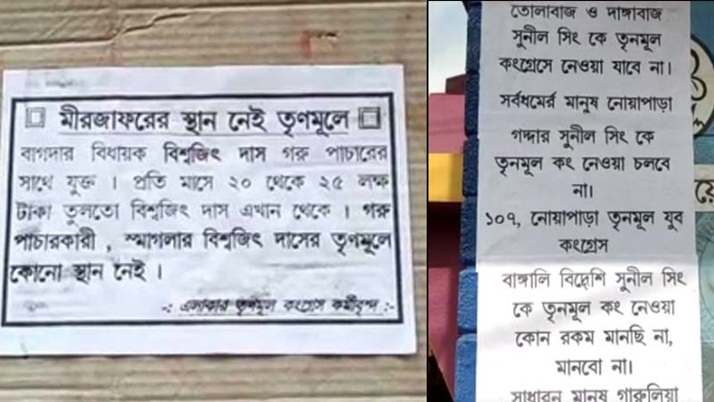 মীরজাফরের স্থান নেই তৃণমূলে
বাগদার বিধায়ক বিশ্বজিৎ দাস গরু পাচারের
সাথে যুক্ত । প্রতি মাসে ২০ থেকে ২৫ লক্ষ
টাকা তুলতো বিশ্বজিৎ দাস এখান থেকে । গরু
পাচারকারী , স্মাগলার বিশ্বজিৎ দাসের তৃণমূলে
কোনো স্থান নেই ।
-: এলাকার তৃণমূল কংগ্রেস কর্মীবৃন্দ :-
তোলাবাজ ও দাঙ্গাবাজ
সুনীল সিং কে তৃনমূল
কংগ্রেসে নেওয়া যাবে না।
সর্বধর্মের মানুষ নোয়াপাড়া
গদ্দার সুনীল সিং কে
তৃনমূল কং নেওয়া চলবে
না।
১০৭, নোয়াপাড়া তৃনমূল যুব
কংগ্রেস
বাঙ্গালি বিদ্বেশি সুনীল সিং
কে তৃনমূল কং নেওয়া
কোন রকম মানছি না,
মানবো না।
সাধারন মানুষ গারুলিয়া